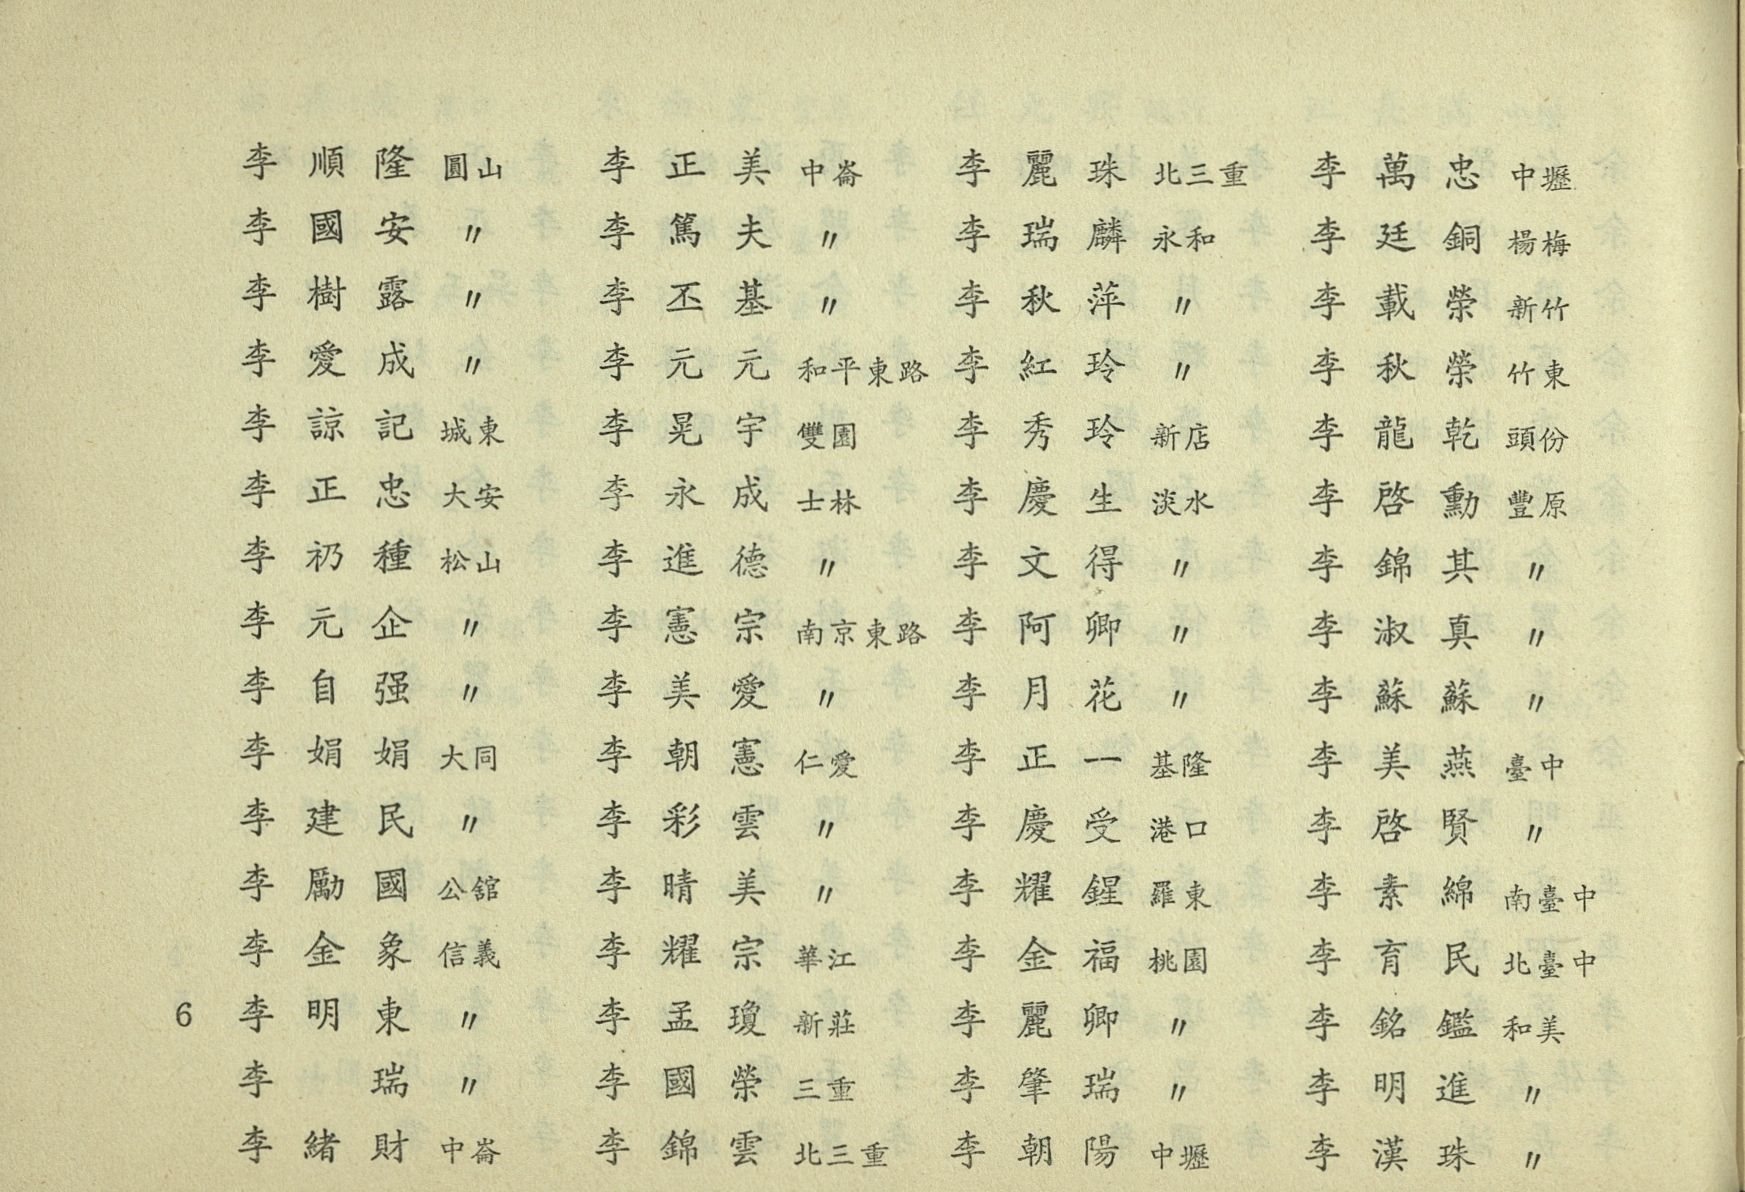 李順隆 圓山
李國安 〃
李樹露 〃
李愛成 〃
李諒記 城東
李正忠 大安
李礽種 松山
李元企 〃
李自强 〃
李娟娟 大同
李建民 〃
李勵國 公舘
李金象 信義
李明東 〃
李瑞 〃
李緒財 中崙
李正美 中崙
李篤夫 〃
李丕基 〃
李元元 和平東路
李晃宇 雙園
李永成 士林
李進德 〃
李憲宗 南京東路
李美愛 〃
李朝憲 仁愛
李彩雲 〃
李晴美 〃
李耀宗 華江
李孟瓊 新莊
李國榮 三重
李錦雲 北三重
李麗珠 北三重
李瑞麟 永和
李秋萍 〃
李紅玲 〃
李秀玲 新店
李慶生 淡水
李文得 〃
李阿卿 〃
李月花 〃
李正一 基隆
李慶受 港口
李耀鍟 羅東
李金福 桃園
李麗卿 〃
李肇瑞 〃
李朝陽 中壢
李萬忠 中壢
李廷銅 楊梅
李載榮 新竹
李秋榮 竹東
李龍乾 頭份
李啓勳 豐原
李錦其 〃
李淑真 〃
李蘇蘇 〃
李美燕 臺中
李啓賢 〃
李素綿 南臺中
李育民 北臺中
李銘鑑 和美
李明進 〃
李漢珠 〃
6